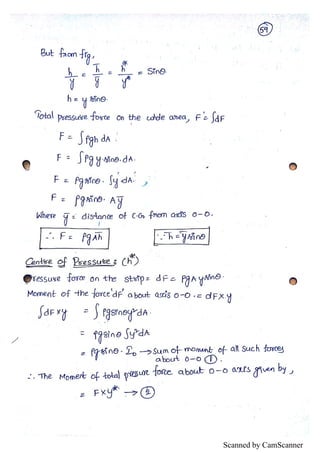 59
But from fig,
h/y = h̄/ȳ = h*/y* = Sinθ
h = y sinθ
Total pressure force on the whole area, F = ∫dF
F = ∫ρgh dA
F = ∫ρg y sinθ dA
F = ρg sinθ ∫y dA
F = ρg sinθ Aȳ
Where ȳ = distance of C.G from axis o-o.
∴ F = ρgAh̄ ∵ h̄ = ȳ sinθ
Centre of Pressure : (h*)
Pressure force on the strip = dF = ρgA y sinθ
Moment of the force 'dF' about axis o-o = dF x y
∫dF xy = ∫ρg sinθ y² dA
= ρg sinθ ∫y² dA
= ρg sinθ . I₀ → sum of moment of all such forces
about o-o ①.
∴ The Moment of total pressure force about o-o axis given by,
= F x y* → ②
Scanned by CamScanner